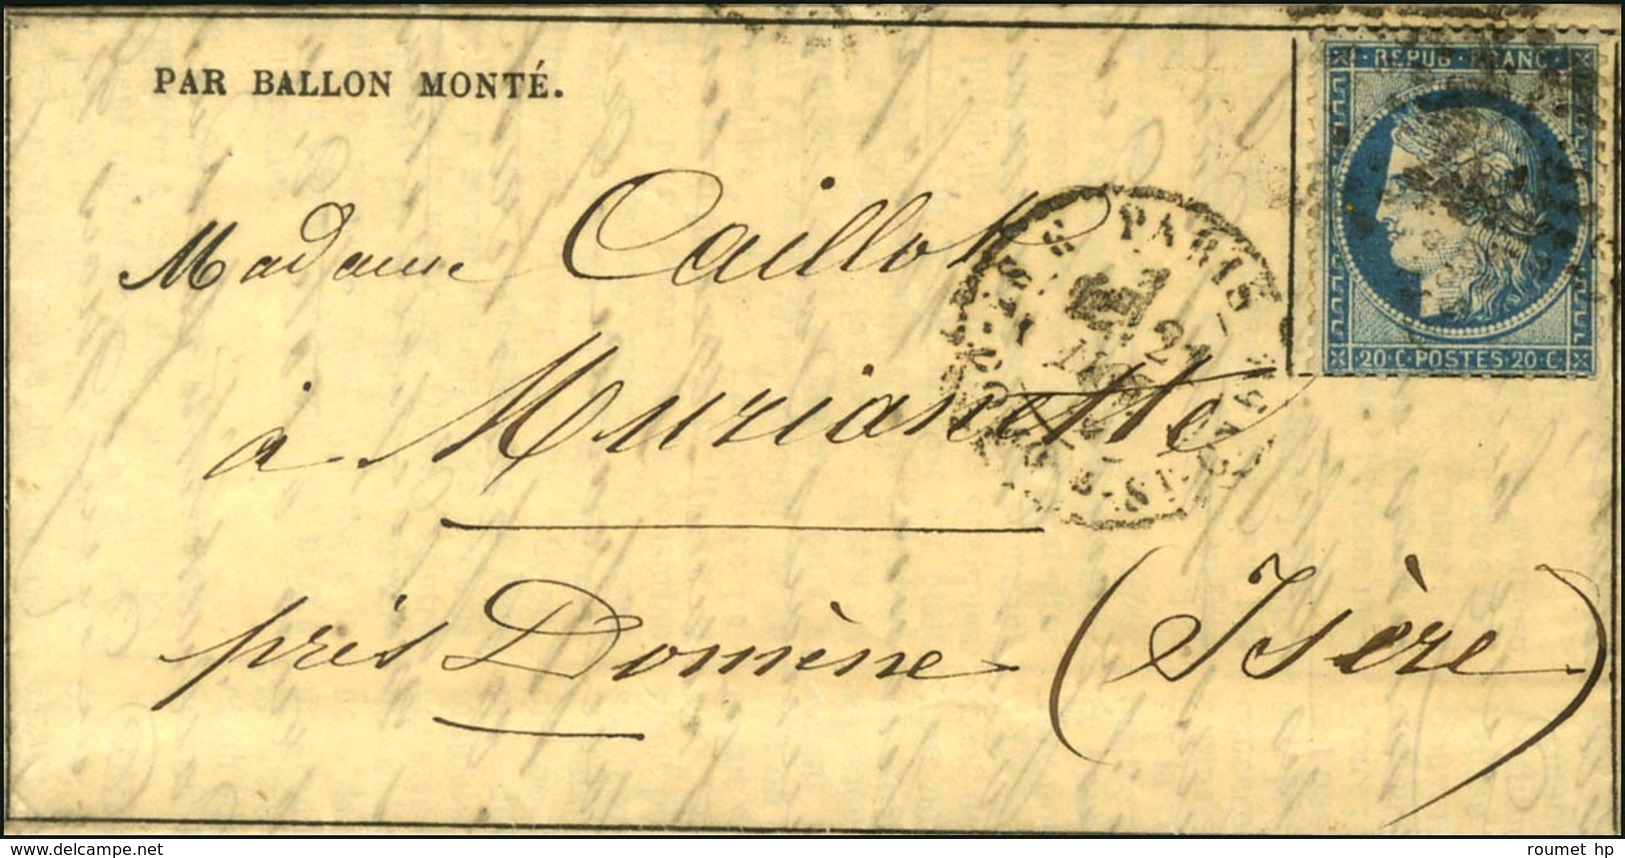 REPUB·FRANC·
PAR BALLON MONTÉ.
Madame Caillot
PARIS
21
à Murianette
20·C·POSTES·20·C·
près Domène (Isère)
delcampe.net
roumet hp